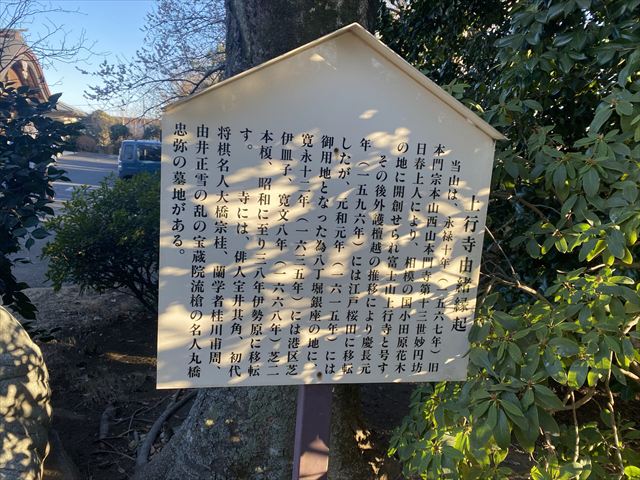 上行寺由緒縁起
当山は、永禄十年（一五六七年）旧
本門宗本山西山本門寺第十三世妙円坊
日春上人により、相模の国小田原花木
の地に開創せられ富士山上行寺と号す
その後外護檀越の推移により慶長元
年（一五九六年）には江戸桜田に移転
したが、元和元年（一六一五年）には
御用地となった為八丁堀銀座の地に、
寛永十二年（一六三五年）には港区芝
伊皿子、寛文八年（一六六八年）芝二
本榎、昭和に至り三八年伊勢原に移転
す。
寺には、俳人宝井其角、初代
将棋名人大橋宗桂、蘭学者桂川甫周、
由井正雪の乱の宝蔵院流槍の名人丸橋
忠弥の墓地がある。